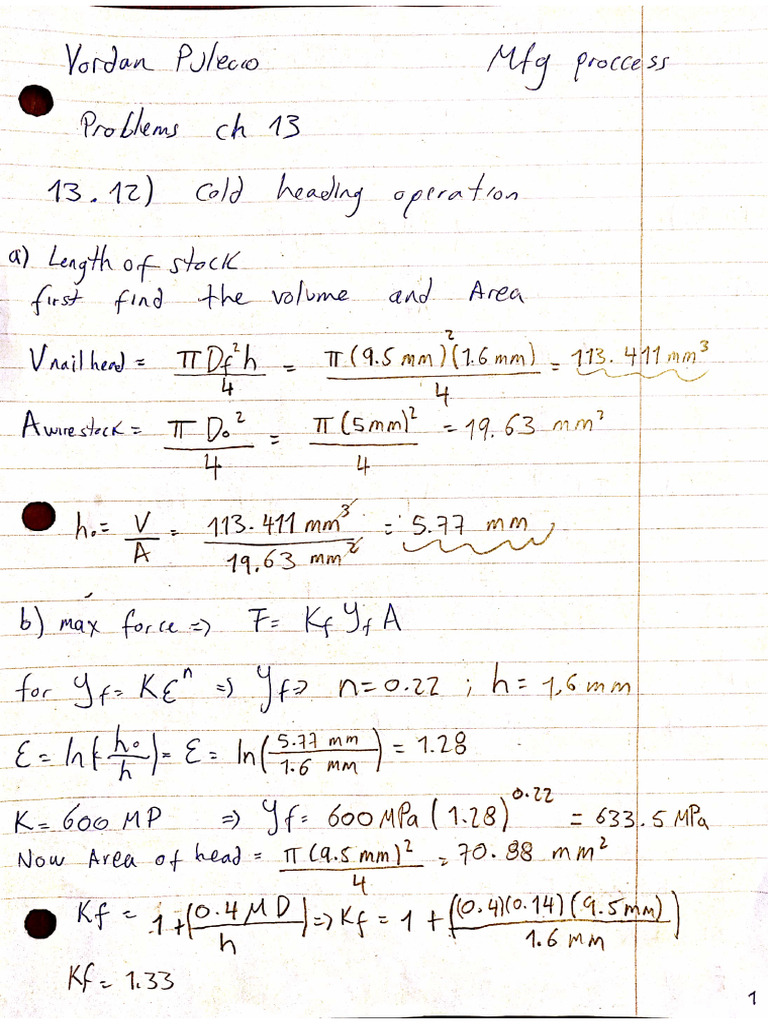 Yordan Pulecio Mfg proccess
Problems ch 13
13.12) Cold heading operation
a) Length of stock
first find the volume and Area
V nail head = πDf²h/4 = π(9.5 mm)²(1.6 mm)/4 = 113.411 mm³
A wire stock = πD₀²/4 = π(5mm)²/4 = 19.63 mm²
h₀ = V/A = 113.411 mm³/19.63 mm² = 5.77 mm
b) max force => F = Kf Yf A
for Yf = Kεⁿ => Yf => n = 0.22 ; h = 1,6 mm
ε = ln(h₀/h) = ε = ln(5.77 mm/1.6 mm) = 1.28
K = 600 MP => Yf = 600 MPa (1.28)^0.22 = 633.5 MPa
Now Area of head = π(9.5 mm)²/4 = 70.88 mm²
Kf = 1+(0.4 M D/h) => Kf = 1 + ((0.4)(0.14)(9.5mm)/1.6 mm)
Kf = 1.33
1